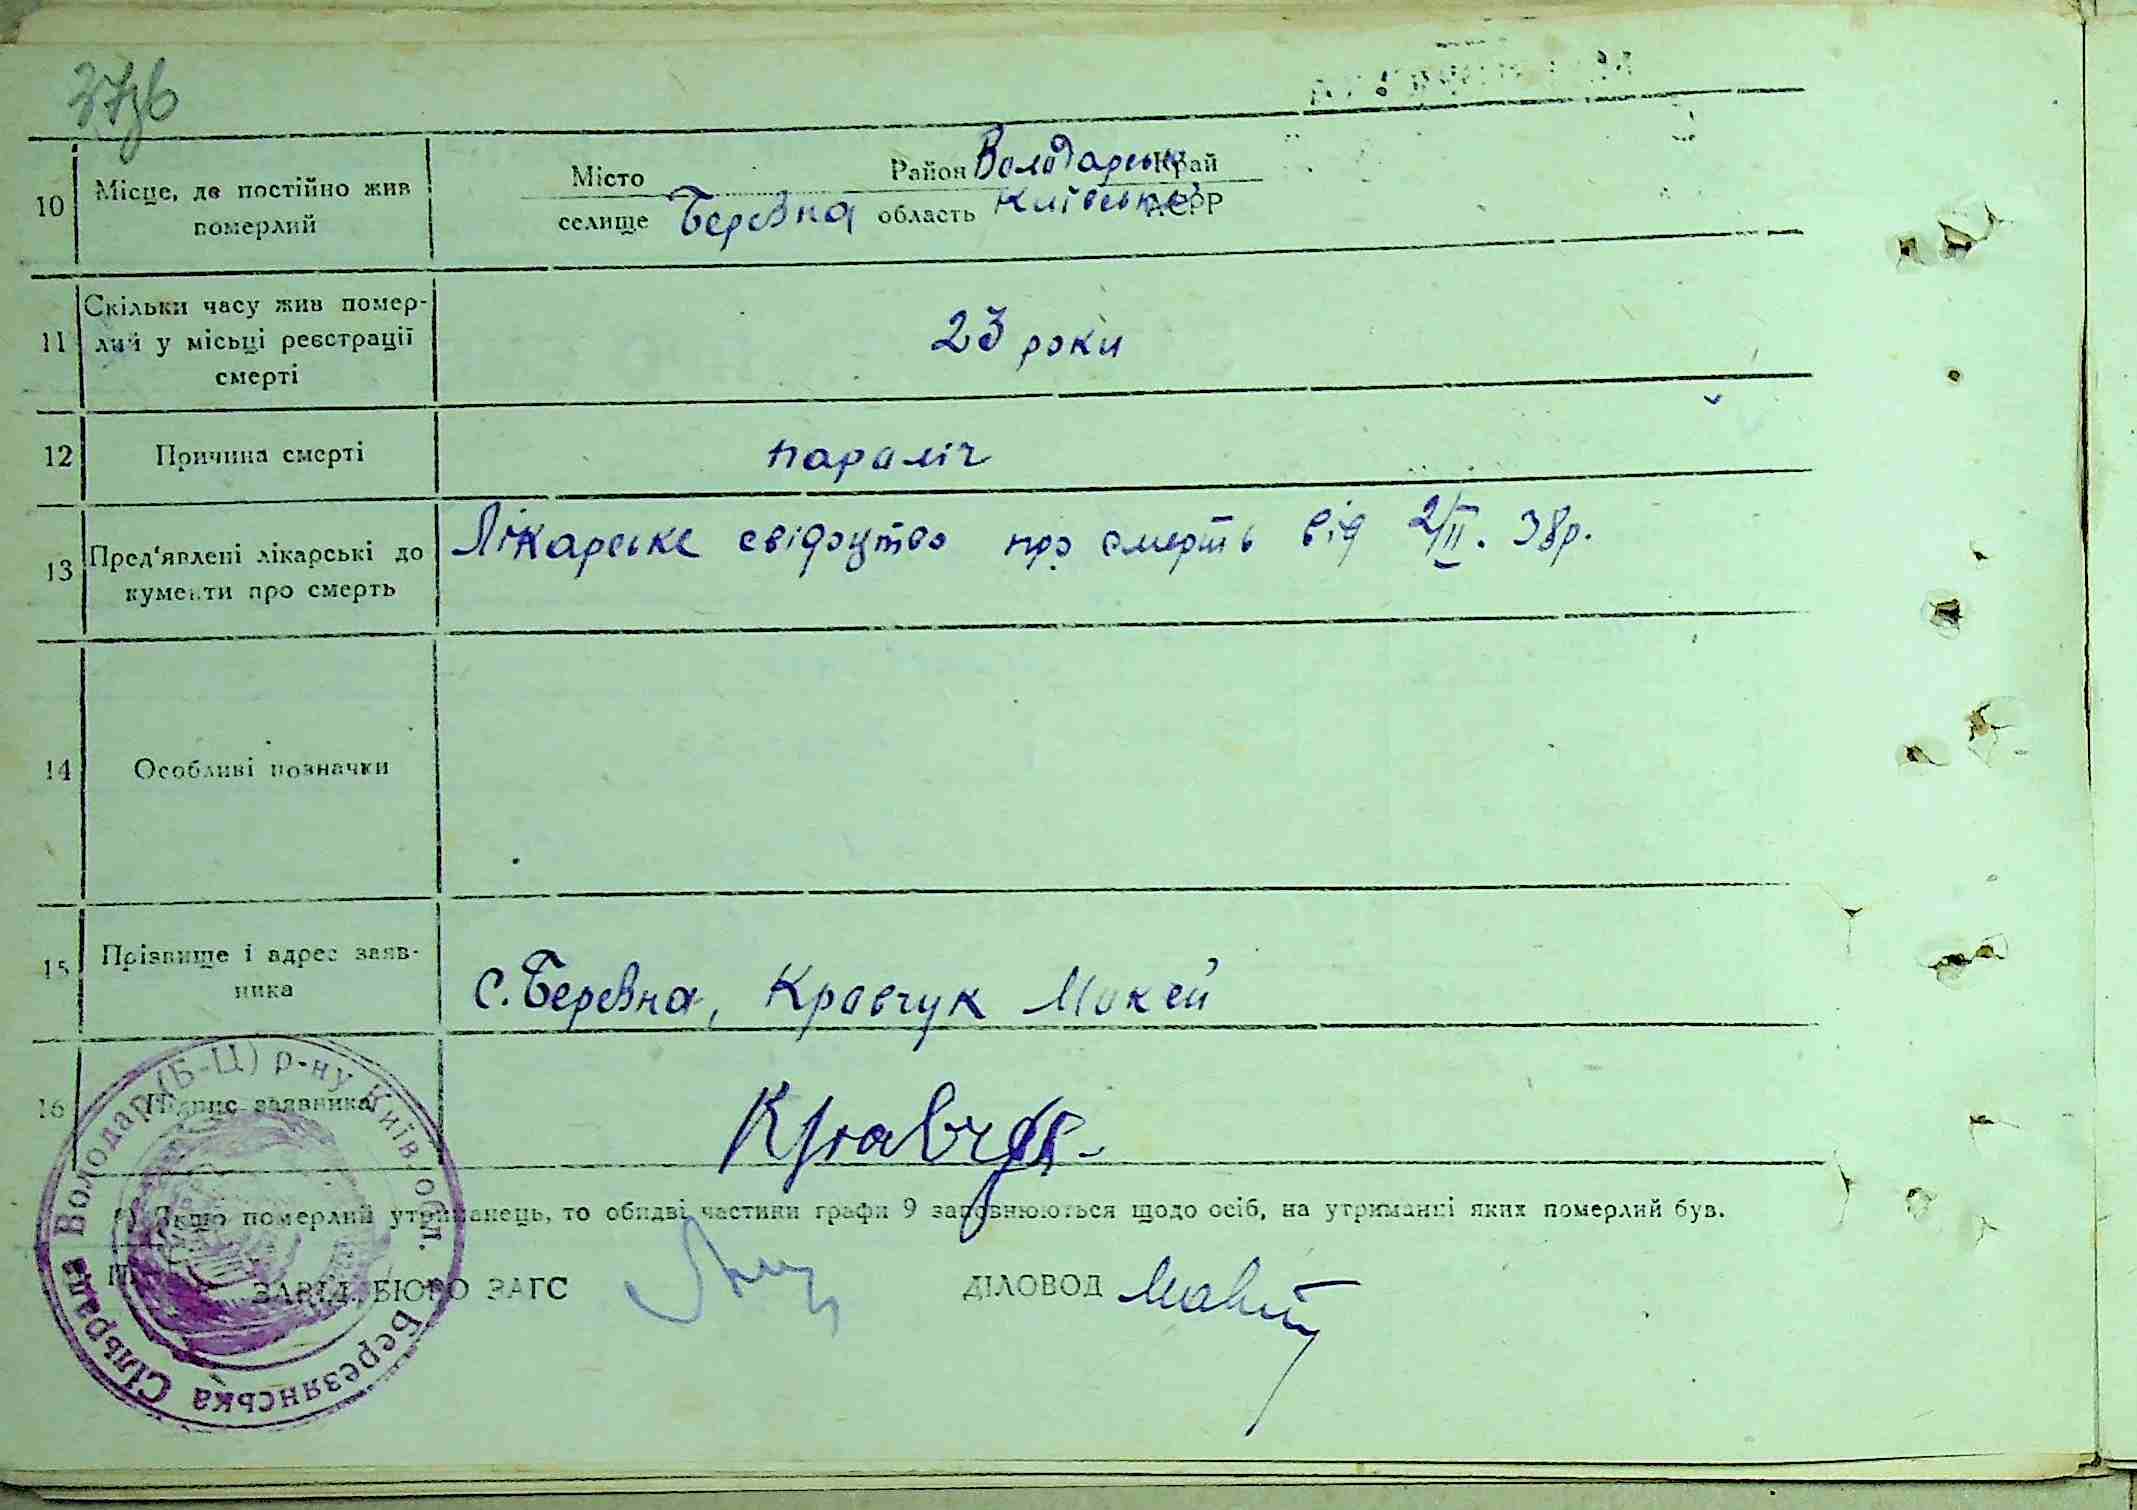 37зв
10 Місце, де постійно жив померлий
Місто Район Володарськ Край
селище Березна область Київська АСРР
11 Скільки часу жив помер-
лий у місьці реєстрації
смерті
23 роки
12 Причина смерті
параліч
13 Пред'явлені лікарські до
кументи про смерть
Лікарське свідоцтво про смерть від 2/II. 38р.
14 Особливі позначки
15 Прізвище і адрес заяв-
ника
с. Березна, Кравчук Мокей
16 Підпис заявника
Кравчук
*) Якщо померлий утриманець, то обидві частини графи 9 заповнюються щодо осіб, на утриманні яких померлий був.
ЗАВІД. БЮРО ЗАГС
ДІЛОВОД
Березянська Сільрада Володар (Б-Ц) р-ну Київ-обл.